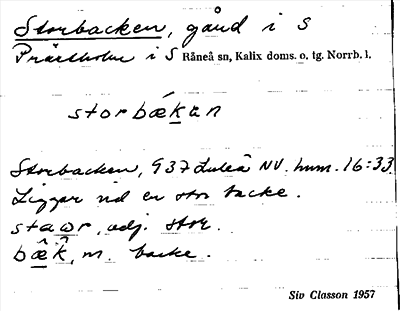 Storbacken, gård i S
Prästholm i S Råneå sn, Kalix doms. o. tg. Norrb. l.
storbæ̀kɑn
Storbacken, 937 Luleå NV. hum. 16:33.
Ligger vid en stor backe.
stɑωr, adj. stor.
bæ̂k̂, m. backe.
Siv Classon 1957